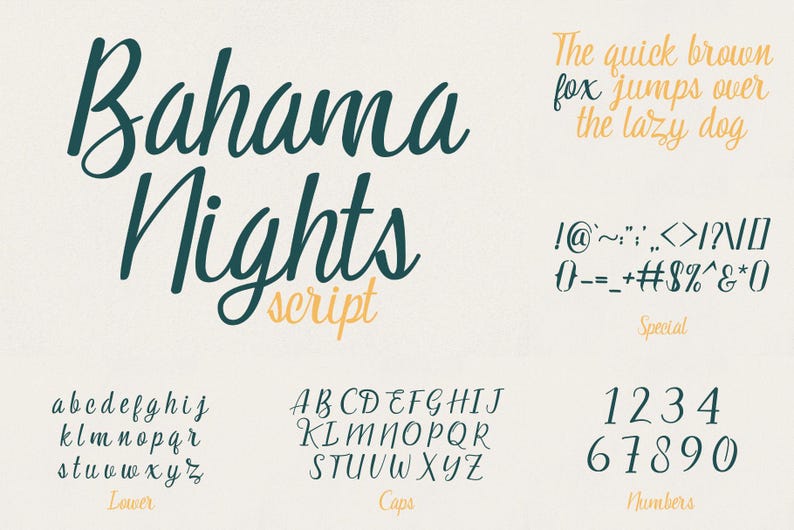 Bahama
Nights
script
The quick brown
fox jumps over
the lazy dog
!@`~:";',.<>/?\|[]
{}-=_+#$%^&*()
Special
abcdefghij
klmnopqr
stuvwxyz
Lower
ABCDEFGHIJ
KLMNOPQR
STUVWXYZ
Caps
1234
67890
Numbers